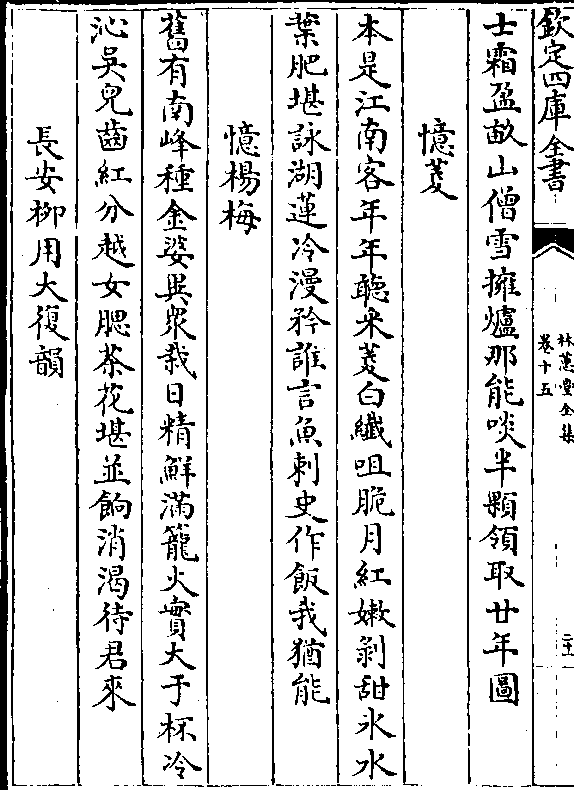 欽定四庫全書
林蕙堂全集
卷十五
士霜盈畝山僧雪擁爐那能啖半顆領取廿年圖
憶菱
本是江南客年年聽采菱白纖咀脆月紅嫩剝甜氷水
葉肥堪詠湖蓮冷漫矜誰言魚刺史作飯我猶能
憶楊梅
舊有南峰種金婆與衆栽日精鮮滿籠火實大于杯冷
沁吳兒齒紅分越女腮茶花堪並餉消渴待君來
長安柳用大復韻